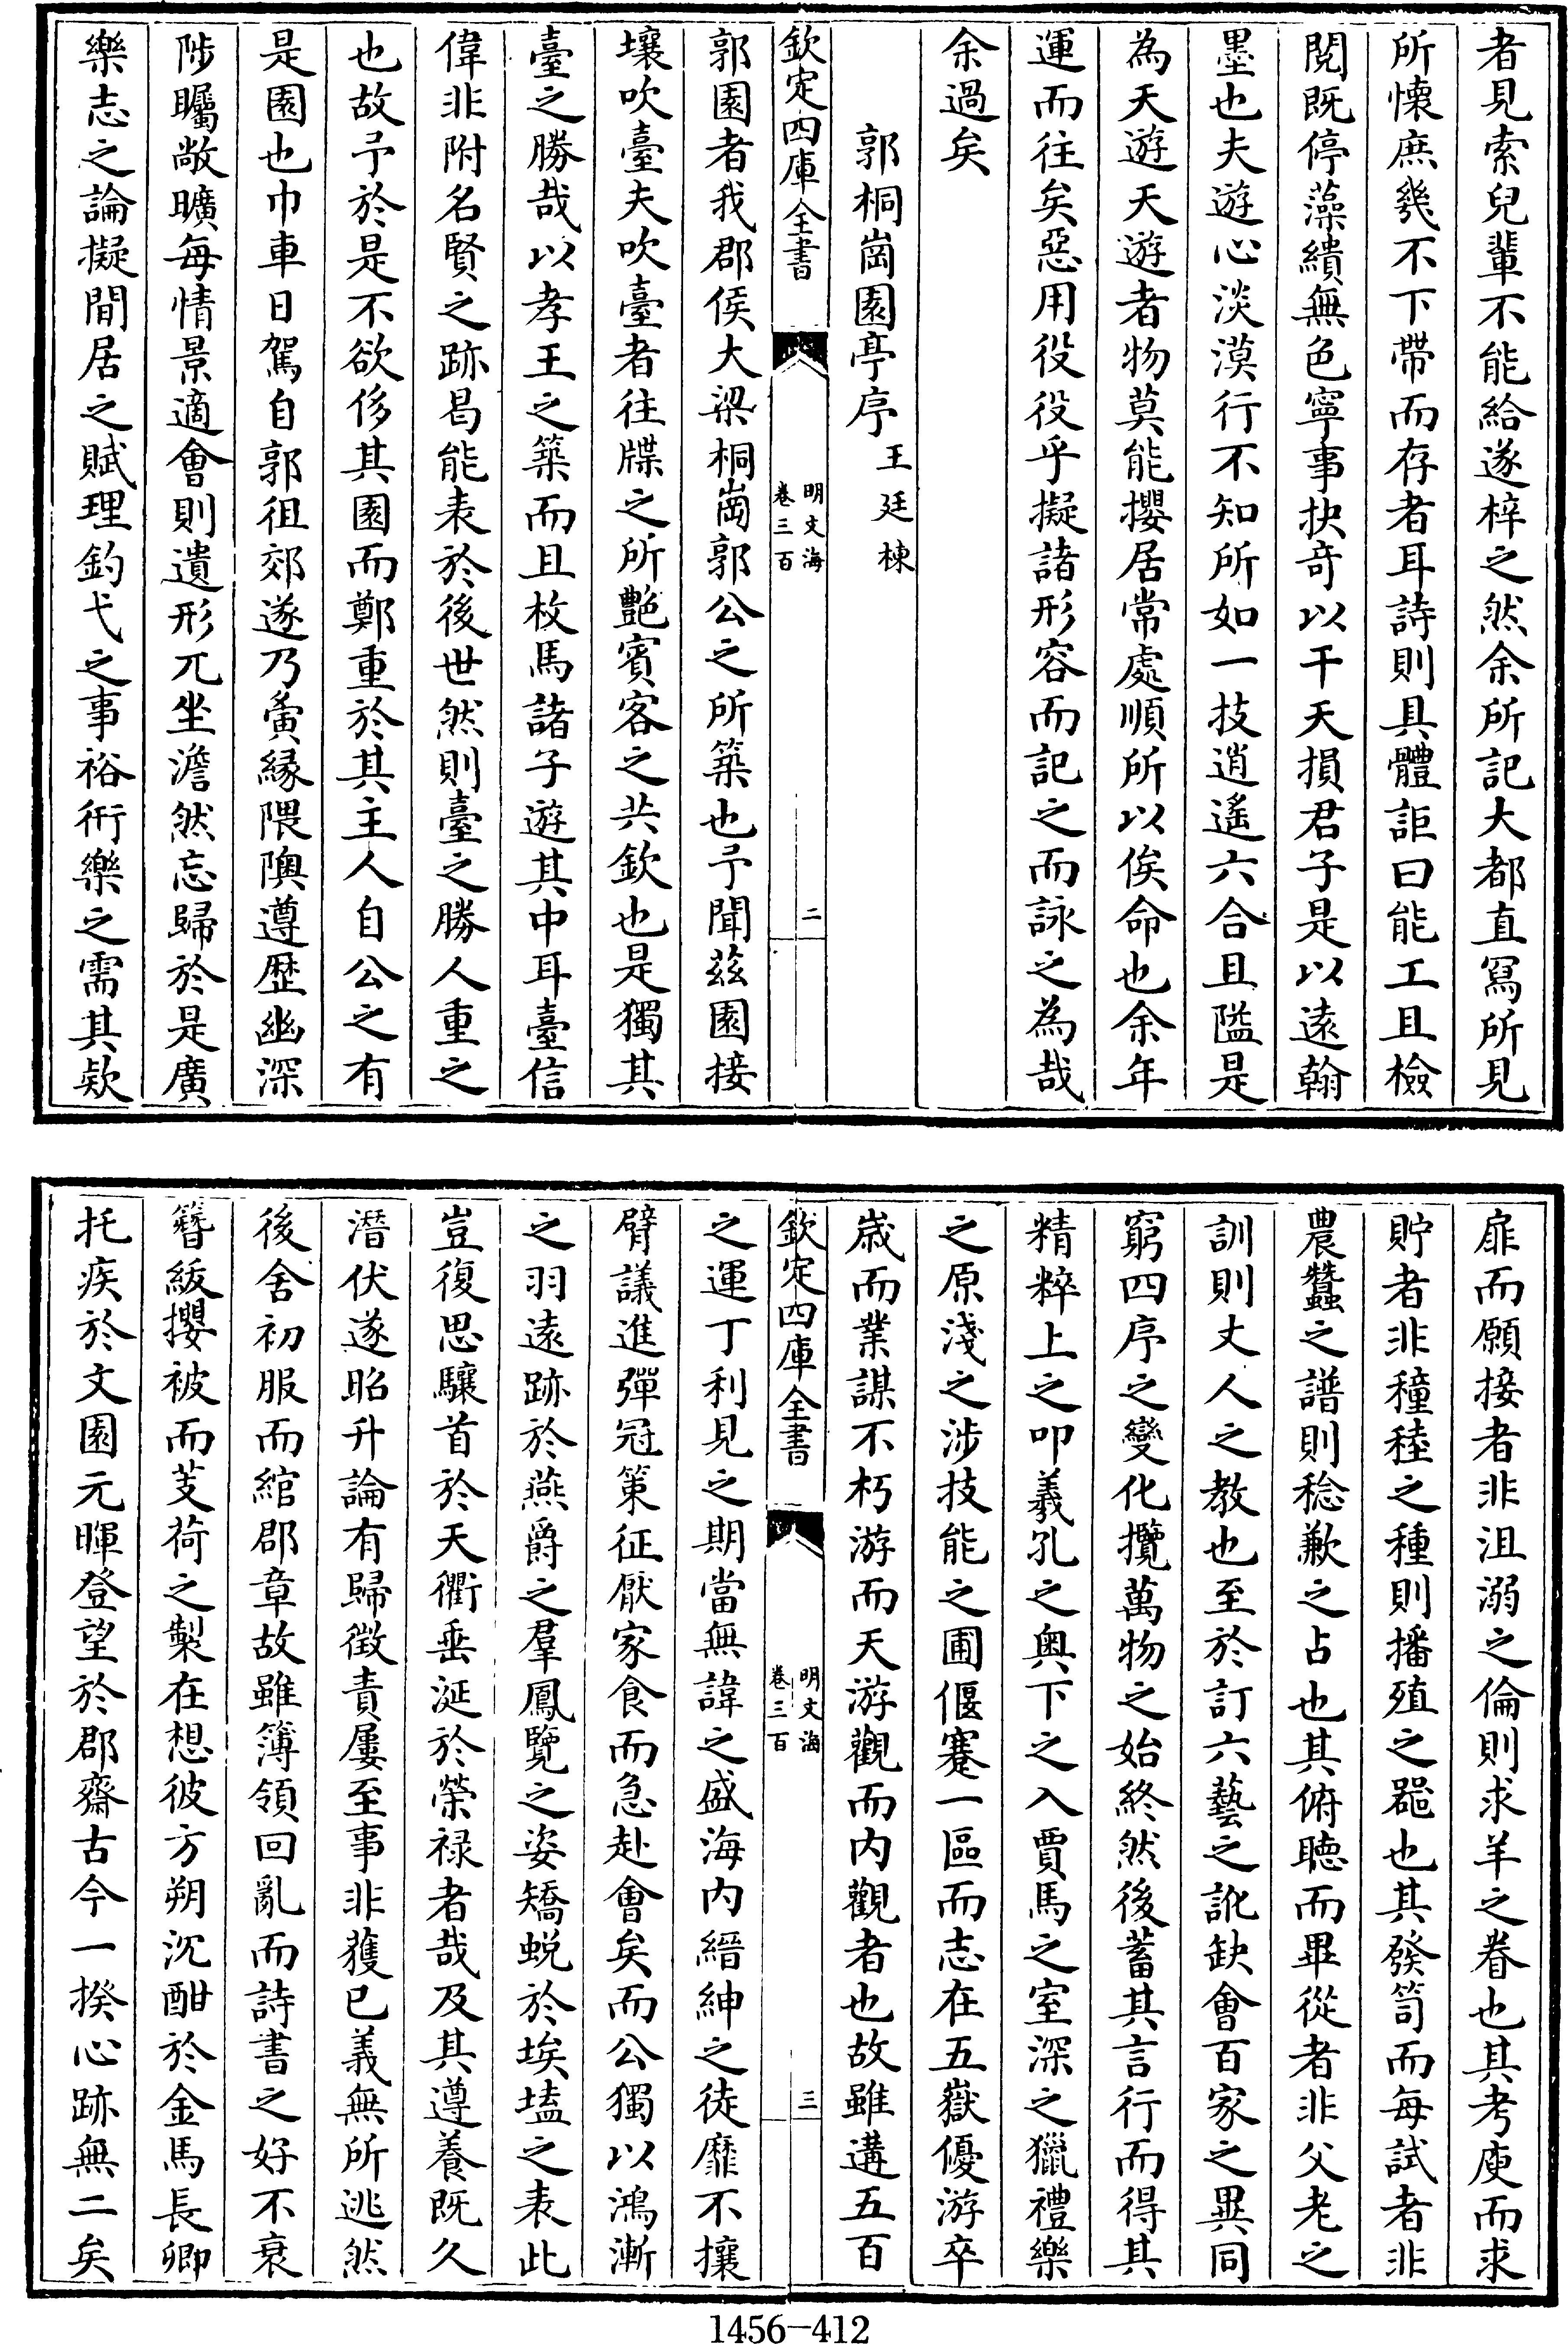 者見索兒輩不能給遂梓之然余所記大都直寫所見
所懐庶幾不下帶而存者耳詩則具體詎曰能工且檢
閱既停藻繢無色寧事抉奇以干天損君子是以逺翰
墨也夫遊心淡漠行不知所如一技逍遙六合且隘是
為天遊天遊者物莫能攖居常處順所以俟命也余年
運而往矣惡用役役乎擬諸形容而記之而詠之為哉
余過矣
郭桐崗園亭序 王廷棟
欽定四庫全書 明文海 卷三百 二
郭園者我郡侯大梁桐崗郭公之所築也予聞茲園接
壤吹臺夫吹臺者往牒之所艶賓客之共欽也是獨其
臺之勝哉以孝王之築而且枚馬諸子遊其中耳臺信
偉非附名賢之跡曷能表於後世然則臺之勝人重之
也故予於是不欲侈其園而鄭重於其主人自公之有
是園也巾車日駕自郭徂郊遂乃夤緣隈隩遵歴幽深
陟矚敞曠每情景適會則遺形兀坐澹然忘歸於是廣
樂志之論擬閒居之賦理釣弋之事裕衎樂之需其款
扉而願接者非沮溺之倫則求羊之眷也其考庾而求
貯者非穜稑之種則播殖之噐也其發笥而每試者非
農蠶之譜則稔歉之占也其俯聴而畢從者非父老之
訓則丈人之教也至於訂六藝之訛缺會百家之異同
窮四序之變化攬萬物之始終然後蓄其言行而得其
精粹上之叩羲孔之奥下之入賈馬之室深之獵禮樂
之原淺之涉技能之圃偃蹇一區而志在五嶽優游卒
歳而業謀不朽游而天游觀而内觀者也故雖遘五百
欽定四庫全書 明文海 卷三百 三
之運丁利見之期當無諱之盛海内縉紳之徒靡不攘
臂議進彈冠策征厭家食而急赴會矣而公獨以鴻漸
之羽逺跡於燕爵之羣鳳覽之姿矯蛻於埃壒之表此
豈復思驤首於天衢垂涎於榮禄者哉及其遵養既久
潛伏遂昭升論有歸徴責屢至事非獲已義無所逃然
後舍初服而綰郡章故雖簿領回亂而詩書之好不衰
簪紱攖被而芰荷之製在想彼方朔沉酣於金馬長卿
托疾於文園元暉登望於郡齋古今一揆心跡無二矣
1456—412